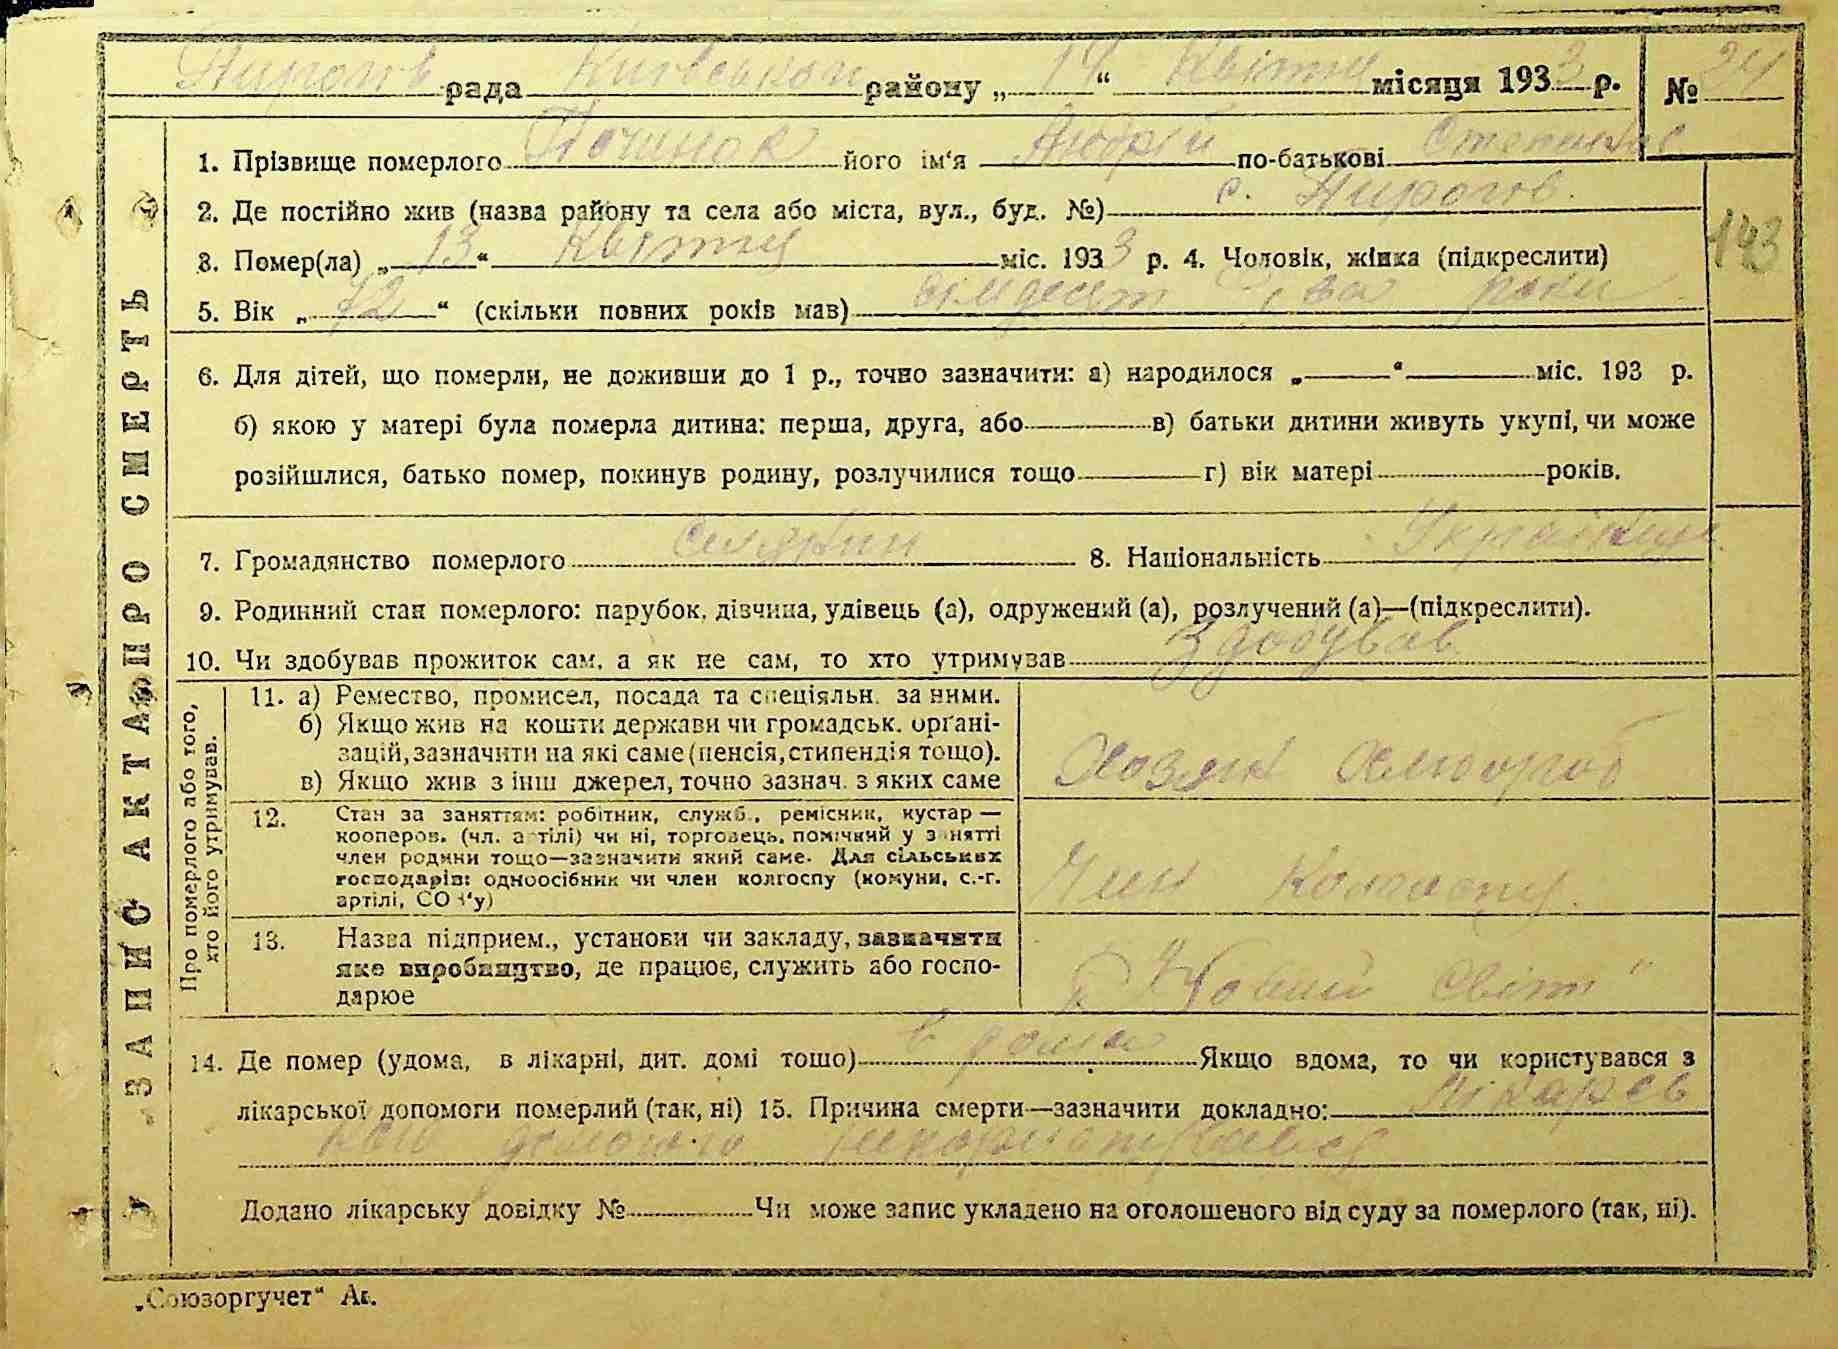 Пирогів рада Київської району „14“ Квітня місяця 1933 р. № 24
1. Прізвище померлого Починок його ім‘я Андрій по-батькові
2. Де постійно жив (назва району та села або міста, вул., буд. №) с. Пирогів.
143
3. Помер(ла) „13“ Квітня міс. 1933 р. 4. Чоловік, жінка (підкреслити)
5. Вік „72“ (скільки повних років мав) сімдесят два роки
6. Для дітей, що померли, не доживши до 1 р., точно зазначити: а) народилося „ “ міс. 193 р.
б) якою у матері була померла дитина: перша, друга, або в) батьки дитини живуть укупі, чи може
розійшлися, батько помер, покинув родину, розлучилися тощо г) вік матері років.
7. Громадянство померлого селянин 8. Національність
9. Родинний стан померлого: парубок, дівчина, удівець (а), одружений (а), розлучений (а)—(підкреслити).
10. Чи здобував прожиток сам, а як не сам, то хто утримував Здобував
ЗАПИС АКТА ПРО СМЕРТЬ
Про померлого або того,
хто його утримував.
11. а) Ремество, промисел, посада та спеціяльн. за ними.
б) Якщо жив на кошти держави чи громадськ. орґані-
зацій, зазначити на які саме (пенсія, стипендія тощо).
в) Якщо жив з інш джерел, точно зазнач. з яких саме
Хозяїн Хлібороб
12. Стан за заняттям: робітник, служб., ремісник, кустар —
кооперов. (чл. артілі) чи ні, торговець, помічний у занятті
член родини тощо—зазначити який саме. Для сільських
господарів: одноосібник чи член колгоспу (комуни, с.-г.
артілі, СОЗ‘у)
Член Колгоспу.
13. Назва підприєм., установи чи закладу, зазначити
яке виробництво, де працює, служить або госпо-
дарює
Світ"
14. Де помер (удома, в лікарні, дит. домі тощо) в дома Якщо вдома, то чи користувався з
лікарської допомоги померлий (так, ні) 15. Причина смерти—зазначити докладно: Лікарсь
кою допомогою
Додано лікарську довідку № Чи може запис укладено на оголошеного від суду за померлого (так, ні).
„Союзоргучет“ Аг.